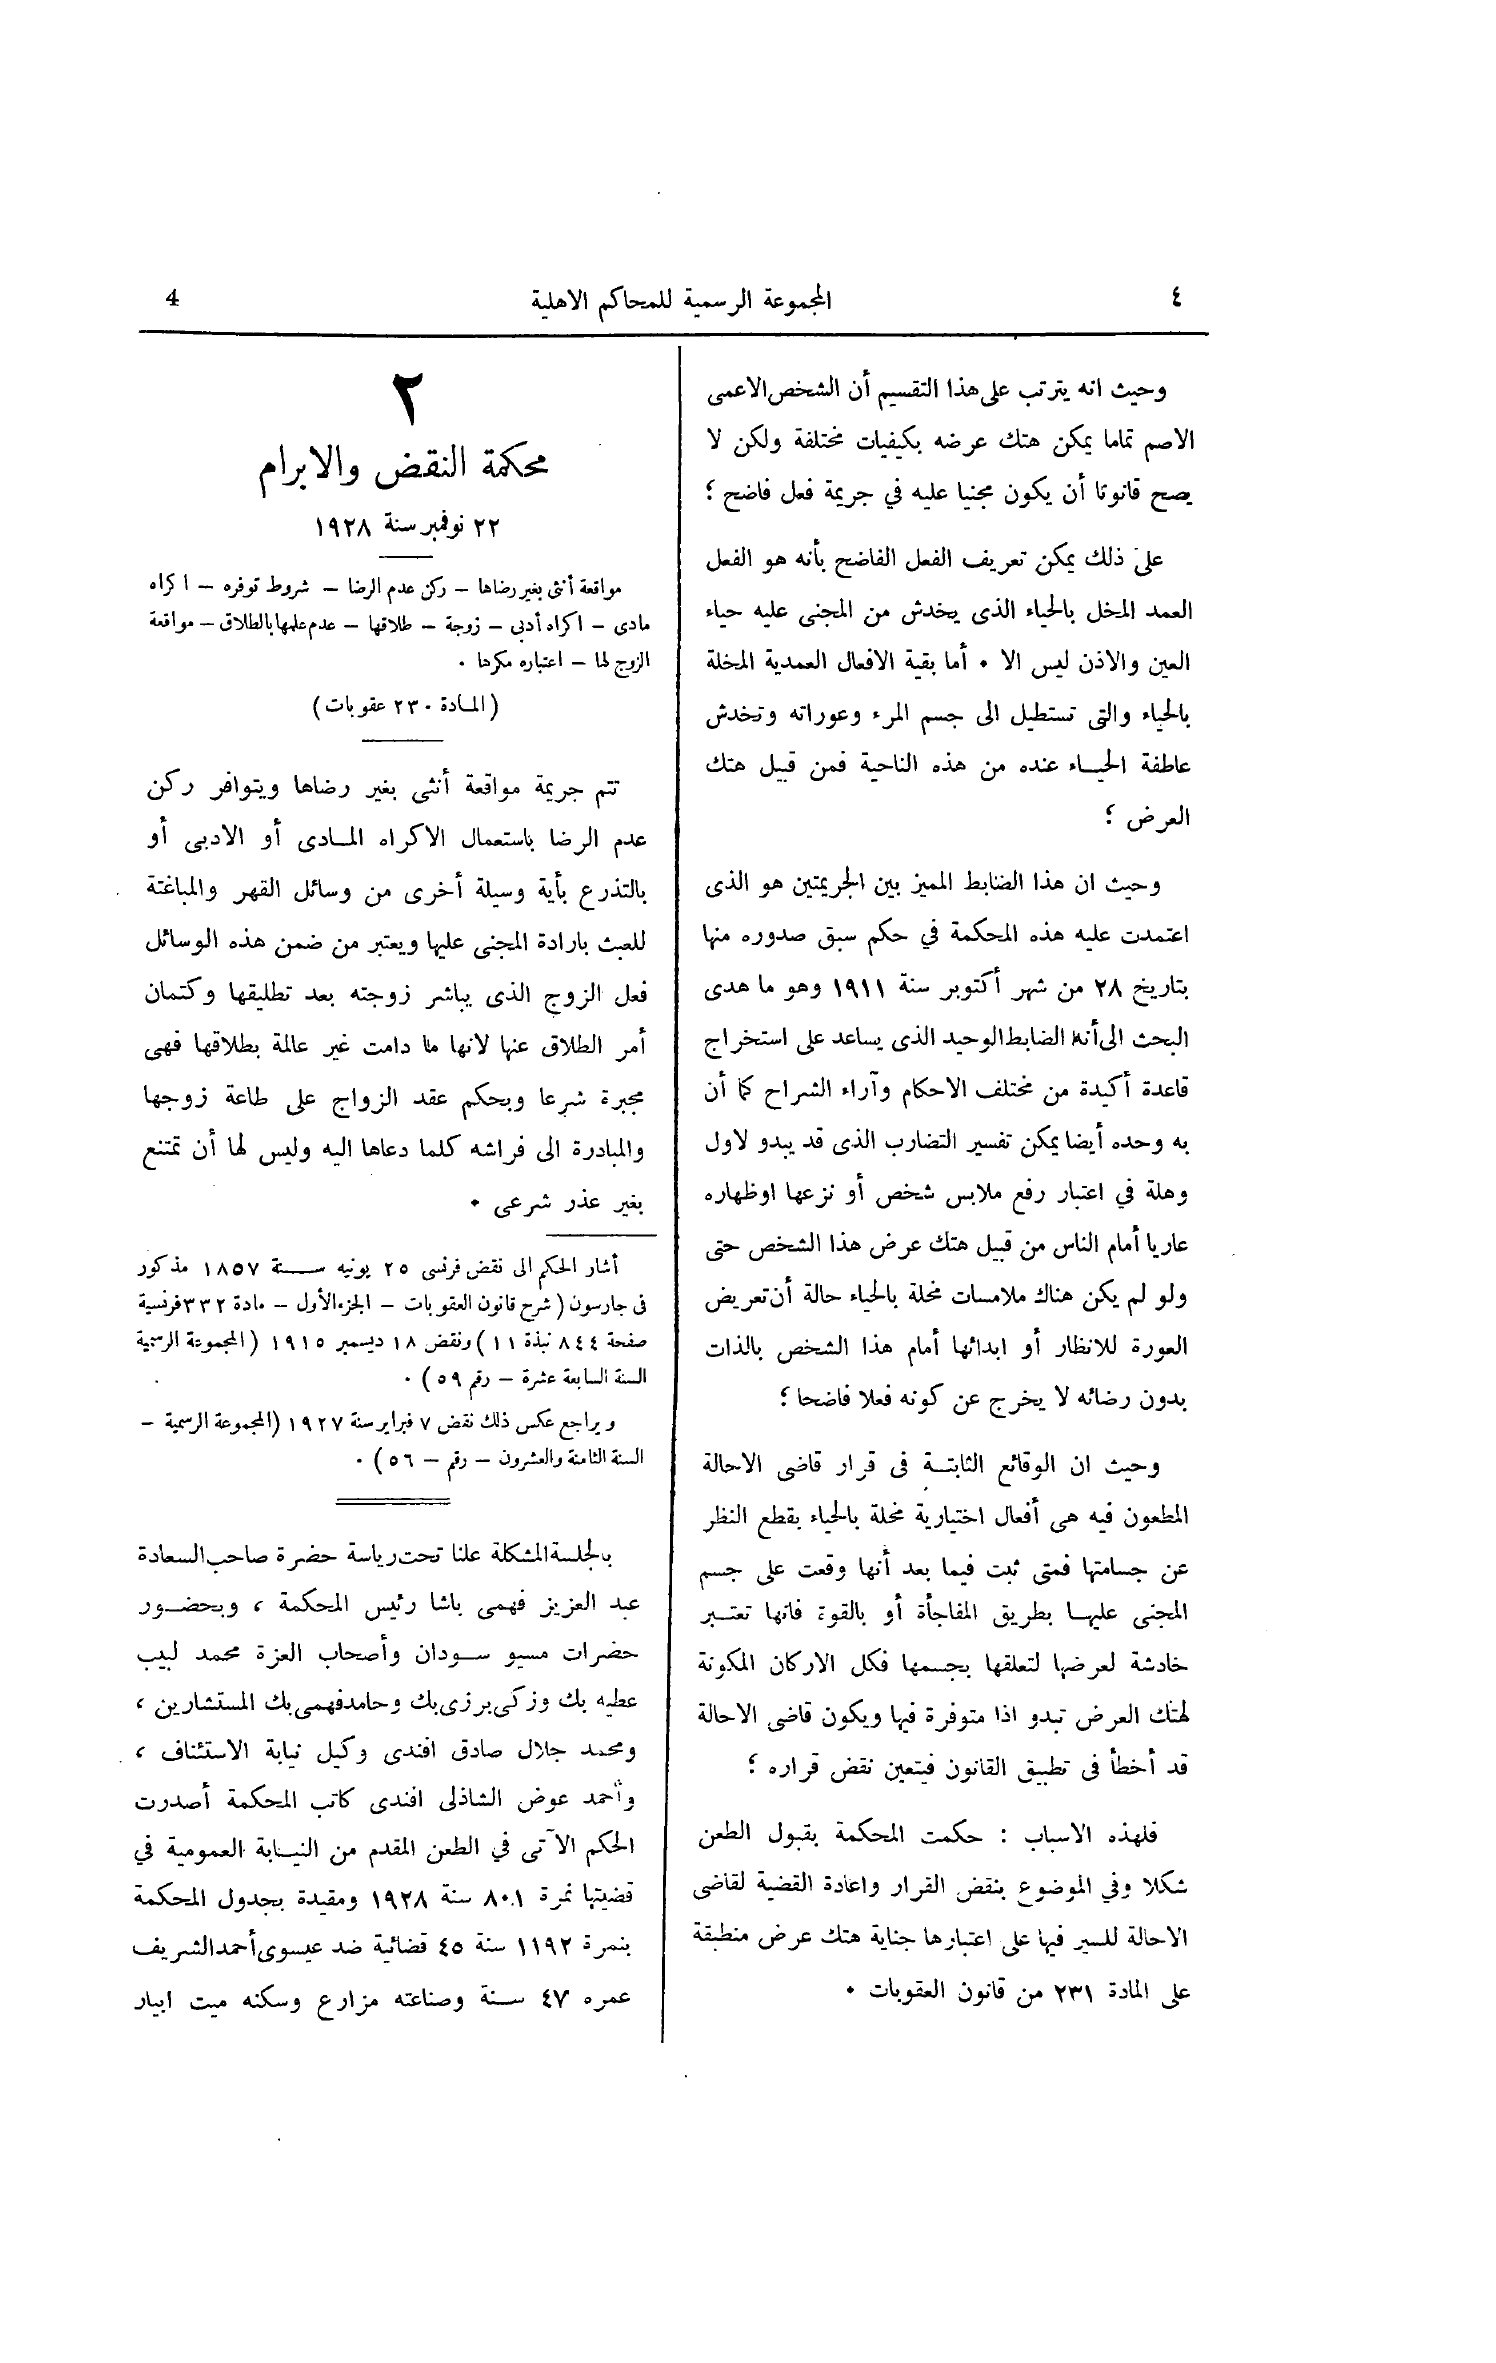 ٤
المجموعة الرسمية للمحاكم الاهلية
4
وحيث انه يترتب على هذا التقسيم أن الشخص الاعمى
الاصم تماما يمكن هتك عرضه بكيفيات مختلفة ولكن لا
يصح قانونا أن يكون مجنيا عليه في جريمة فعل فاضح ؛
على ذلك يمكن تعريف الفعل الفاضح بأنه هو الفعل
العمد المخل بالحياء الذى يخدش من المجنى عليه حياء
العين والاذن ليس الا ٠ أما بقية الافعال العمدية المخلة
بالحياء والتى تستطيل الى جسم المرء وعوراته وتخدش
عاطفة الحياء عنده من هذه الناحية فمن قبيل هتك
العرض ؛
وحيث ان هذا الضابط المميز بين الجريمتين هو الذى
اعتمدت عليه هذه المحكمة في حكم سبق صدوره منها
بتاريخ ٢٨ من شهر أكتوبر سنة ١٩١١ وهو ما هدى
البحث الى أنه الضابط الوحيد الذى يساعد على استخراج
قاعدة أكيدة من مختلف الاحكام وآراء الشراح كما أن
به وحده أيضا يمكن تفسير التضارب الذى قد يبدو لاول
وهلة في اعتبار رفع ملابس شخص أو نزعها اوظهاره
عاريا أمام الناس من قبيل هتك عرض هذا الشخص حتى
ولو لم يكن هناك ملامسات مخلة بالحياء حالة أن تعريض
العورة للانظار أو ابدائها أمام هذا الشخص بالذات
بدون رضائه لا يخرج عن كونه فعلا فاضحا ؛
وحيث ان الوقائع الثابتة فى قرار قاضى الاحالة
المطعون فيه هى أفعال اختيارية مخلة بالحياء بقطع النظر
عن جسامتها فمتى ثبت فيما بعد أنها وقعت على جسم
المجنى عليها بطريق المفاجأة أو بالقوة فانها تعتبر
خادشة لعرضها لتعلقها بجسمها فكل الاركان المكونة
لهتك العرض تبدو اذا متوفرة فيها ويكون قاضى الاحالة
قد أخطأ فى تطبيق القانون فيتعين نقض قراره ؛
فلهذه الاسباب : حكمت المحكمة بقبول الطعن
شكلا وفي الموضوع بنقض القرار واعادة القضية لقاضى
الاحالة للسير فيها على اعتبارها جناية هتك عرض منطبقة
على المادة ٢٣١ من قانون العقوبات ٠
٢
محكمة النقض والابرام
٢٢ نوفمبر سنة ١٩٢٨
مواقعة أنثى بغير رضاها – ركن عدم الرضا – شروط توفره – اكراه
مادى – اكراه أدبى – زوجة – طلاقها – عدم علمها بالطلاق – مواقعة
الزوج لها – اعتباره مكرها ٠
(المادة ٢٣٠ عقوبات)
تتم جريمة مواقعة أنثى بغير رضاها ويتوافر ركن
عدم الرضا باستعمال الاكراه المادى أو الادبى أو
بالتذرع بأية وسيلة أخرى من وسائل القهر والمباغتة
للعبث بارادة المجنى عليها ويعتبر من ضمن هذه الوسائل
فعل الزوج الذى يباشر زوجته بعد تطليقها وكتمان
أمر الطلاق عنها لانها ما دامت غير عالمة بطلاقها فهى
مجبرة شرعا وبحكم عقد الزواج على طاعة زوجها
والمبادرة الى فراشه كلما دعاها اليه وليس لها أن تمتنع
بغير عذر شرعى ٠
أشار الحكم الى نقض فرنسى ٢٥ يونيه سنة ١٨٥٧ مذكور
فى جارسون (شرح قانون العقوبات – الجزء الأول – مادة ٣٣٢ فرنسية
صفحة ٨٤٤ نبذة ١١) ونقض ١٨ ديسمبر ١٩١٥ (المجموعة الرسمية
السنة السابعة عشرة – رقم ٥٩) ٠
ويراجع عكس ذلك نقض ٧ فبراير سنة ١٩٢٧ (المجموعة الرسمية –
السنة الثامنة والعشرون – رقم – ٥٦) ٠
بالجلسة المشكلة علنا تحت رياسة حضرة صاحب السعادة
عبد العزيز فهمى باشا رئيس المحكمة ، وبحضور
حضرات مسيو سودان وأصحاب العزة محمد لبيب
عطيه بك وزكى برزى بك وحامد فهمى بك المستشارين ،
ومحمد جلال صادق افندى وكيل نيابة الاستئناف ،
وأحمد عوض الشاذلى افندى كاتب المحكمة أصدرت
الحكم الآتى في الطعن المقدم من النيابة العمومية في
قضيتها نمرة ٨٠١ سنة ١٩٢٨ ومقيدة بجدول المحكمة
بنمرة ١١٩٢ سنة ٤٥ قضائية ضد عيسوى أحمد الشريف
عمره ٤٧ سنة وصناعته مزارع وسكنه ميت ابيار